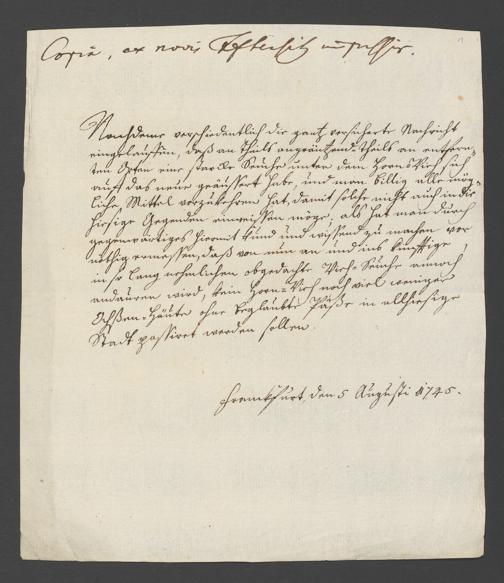 Copia, ex novis
Nachdeme verschiedentlich die gantz versicherte Nachricht
eingelauffen, daß an theils angräntzend- theils an entfern-
ten Orten eine starcke Seuche unter dem Horn-Vieh sich
auff das neue geäussert habe, und man billig alle mög-
liche Mittel vorzukehren hat, damit solche nicht auch in die
hiesige Gegenden einreissen möge, als hat man durch
gegenwärtiges hiermit kund und wissend zu machen vor
nöthig ermessen, daß von nun an und ins künfftige,
in so lang nehmlichen obgedachte Vieh-Seuche annoch
andauren wird, kein Horn-Vieh noch viel weniger
Ochßen-Häute ohne beglaubte Päße in allhiesige
Stadt passiret werden sollen.
Franckfurt, den 5 Augusti 1745.